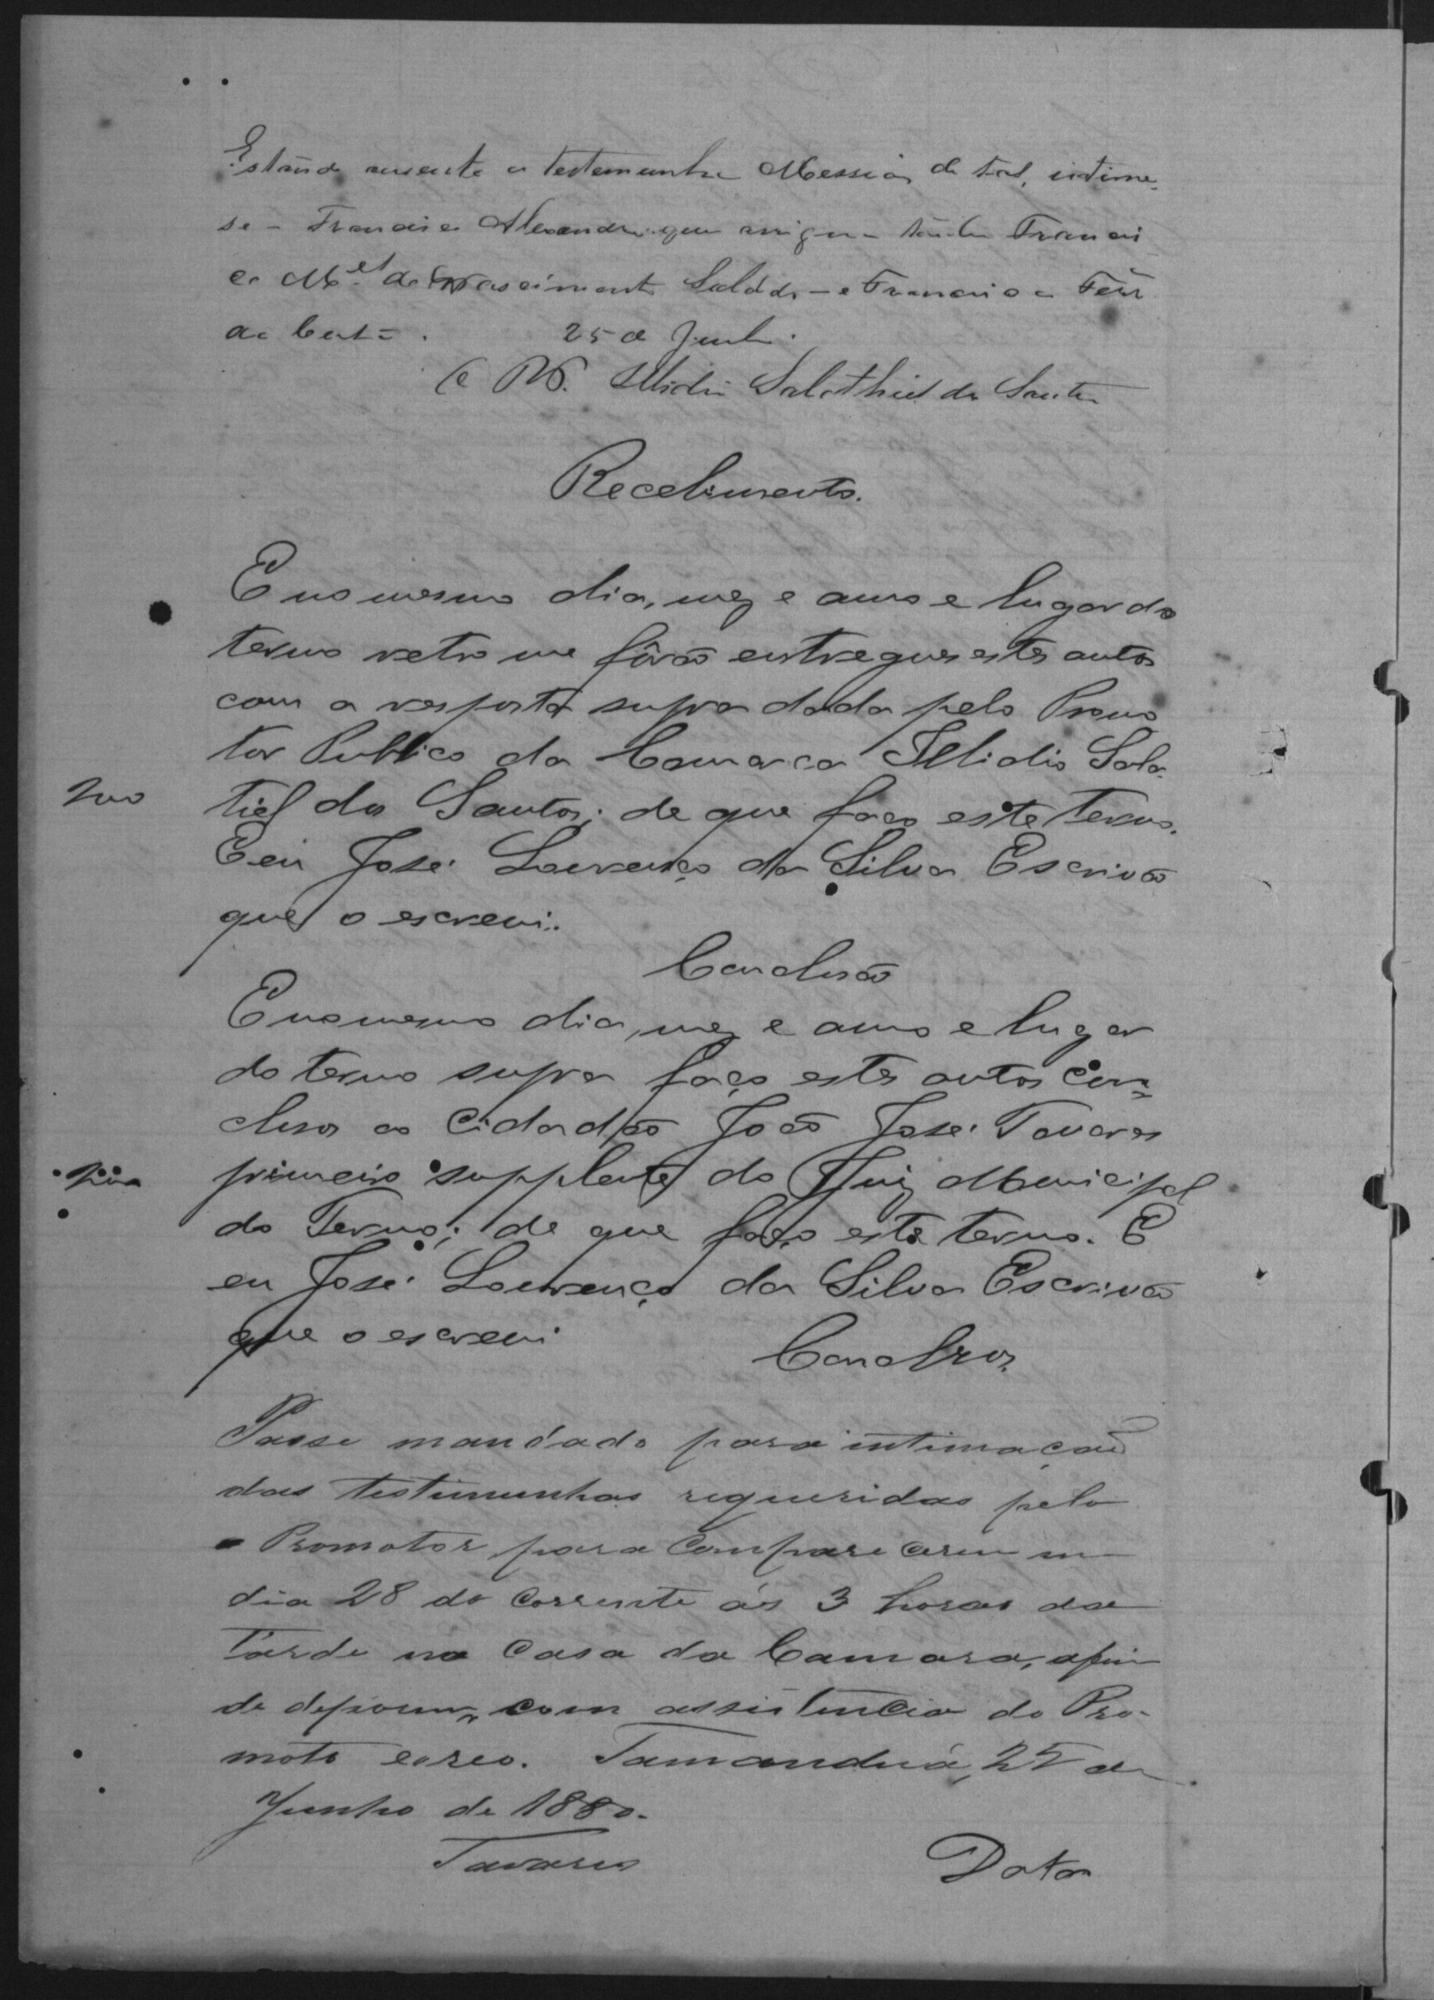 Estando ausente a testemunha Messias de tal, intime-
se - Francisco Alexandre que assigna Francis
co M.el do Nascimento
25 de Junho.
Salathiel dos Santos
Recebimento.
E no mesmo dia, mez e anno e lugar do
termo retro me fôrão entregues estes autos
com a resposta supra dada pelo Promo
tor Publico da Comarca Illidio Sala
tiel dos Santos; de que faço este termo.
E eu José Lourenço da Silva Escrivão
que o escrevi.
Conclusão
E no mesmo dia, mez e anno e lugar
do termo supra faço estes autos con-
clusos ao Cidadão João José Tavares
primeiro supplente do Juiz Municipal
do Termo; de que faço este termo. E
eu José Lourenço da Silva Escrivão
que o escrevi
Conclzos.
Passe mandado para intimação
das testimunhas requeridas pelo
Promotor para comparicerem no
dia 28 do corrente ás 3 horas da
tarde na casa da Camara, afim
de deporem, com assistencia do Pro-
moto e o reo. Tamanduá, 25 de
Junho de 1880.
Tavares
Data